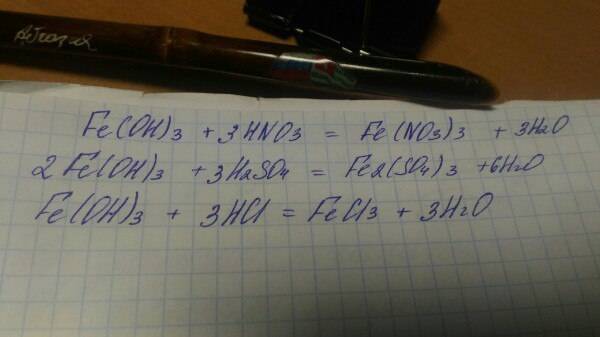 Fe(OH)3 + 3HNO3 = Fe(NO3)3 + 3H2O
2Fe(OH)3 + 3H2SO4 = Fe2(SO4)3 + 6H2O
Fe(OH)3 + 3HCl = FeCl3 + 3H2O